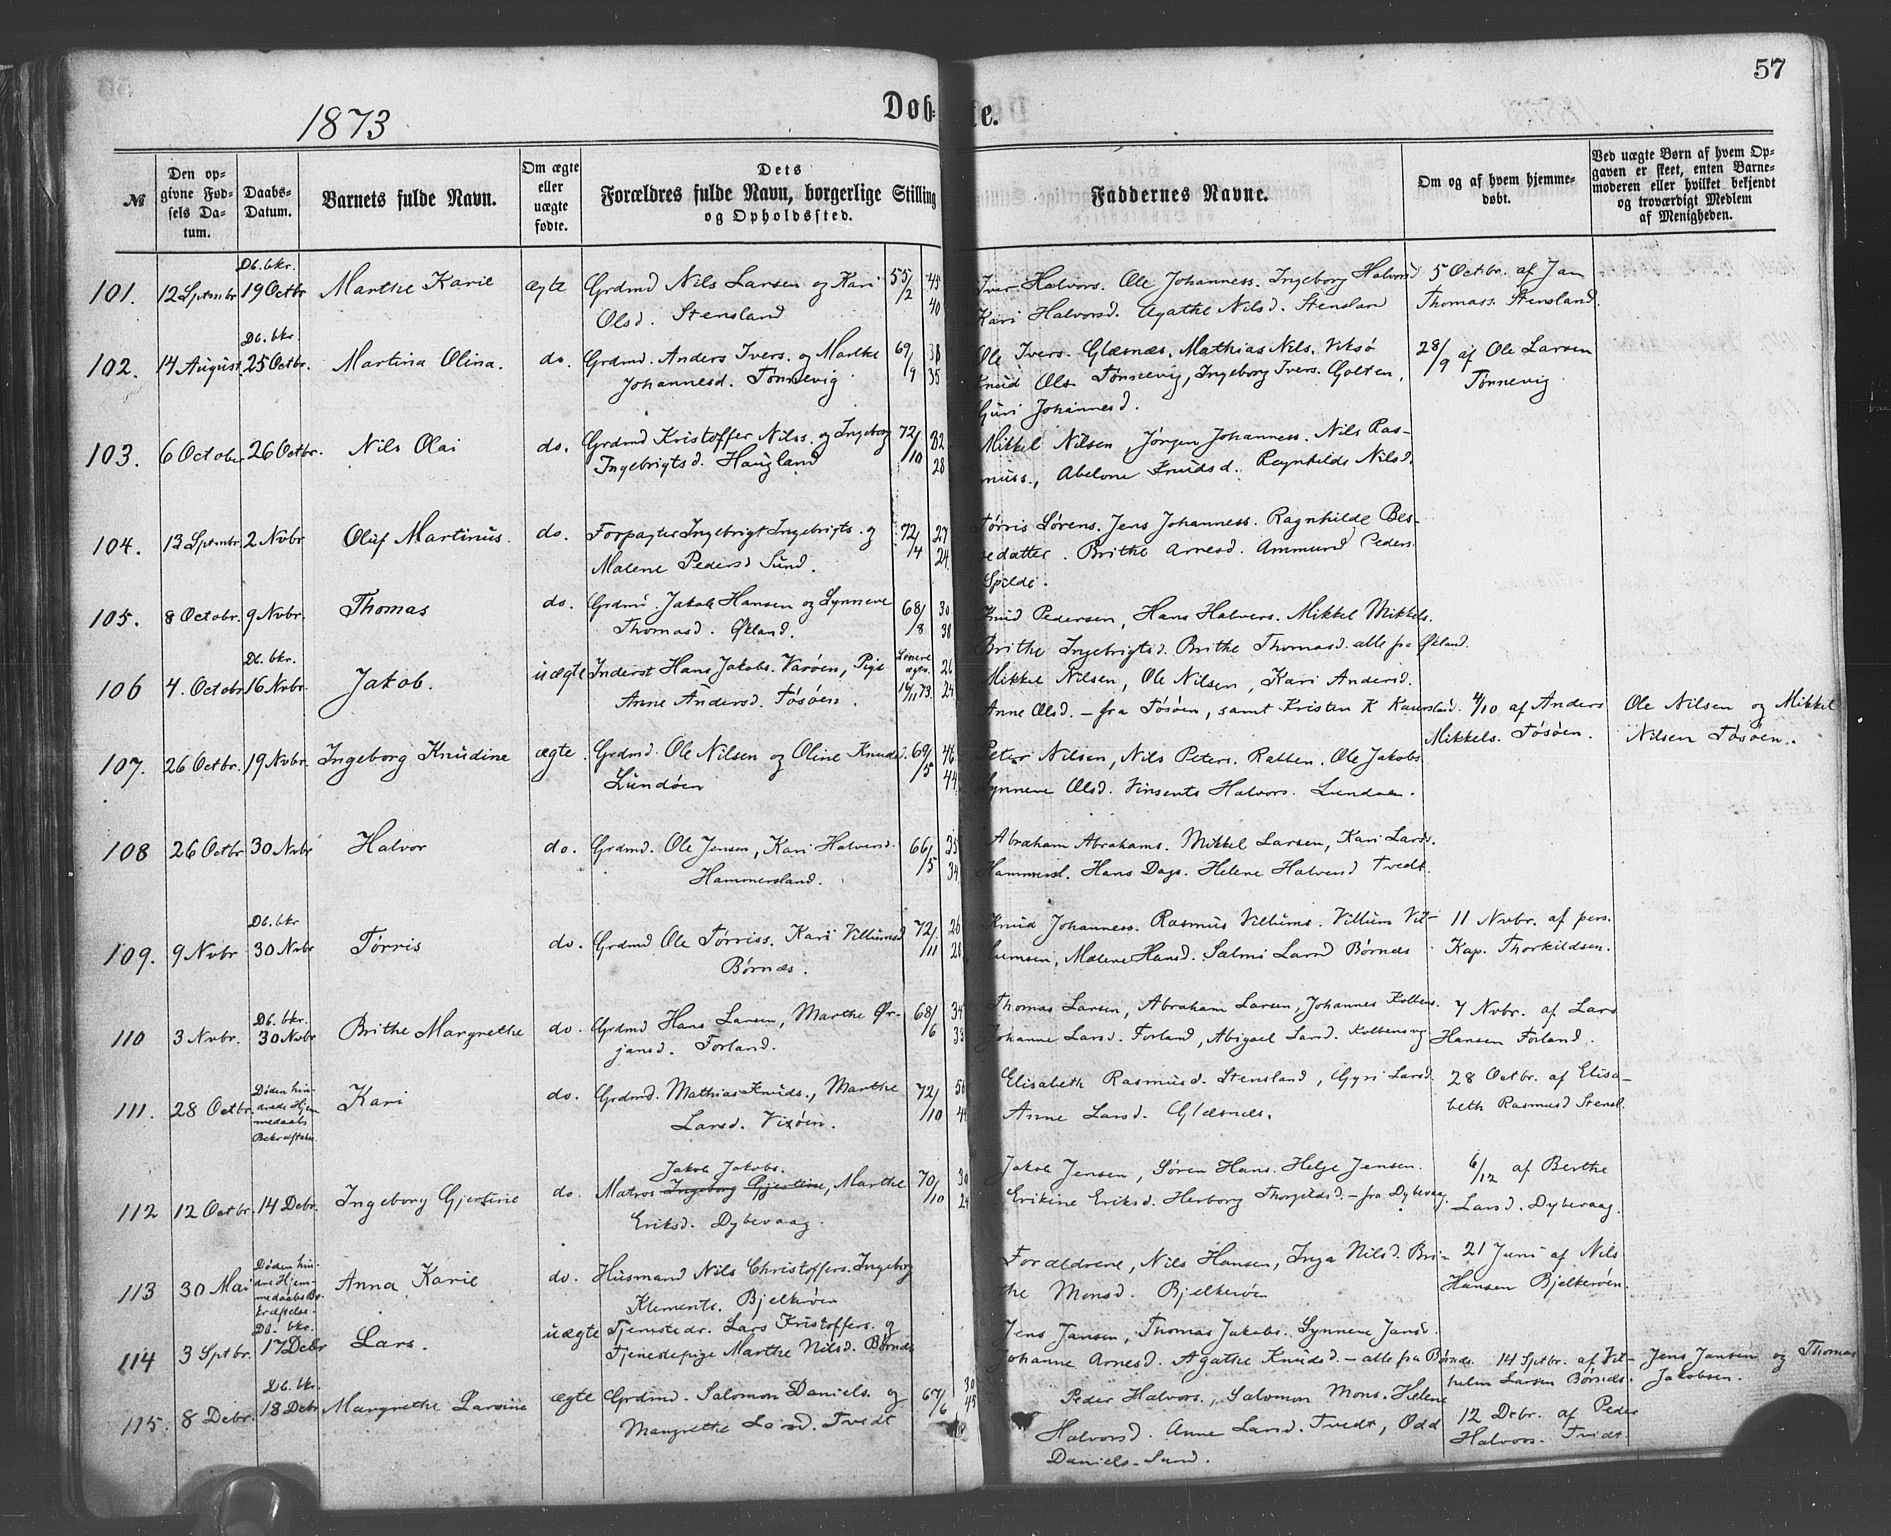 57
1873
Døb-
te.
№
Den op-
givne Fød-
sels Da-
tum.
Daabs-
Datum.
Barnets fulde Navn.
Om ægte
eller
uægte
fødte.
Dets
Forældres fulde Navn, borgerlige Stilling
og Opholdssted.
Faddernes Navne.
Om og af hvem hjemme-
døbt.
Ved uægte Børn af hvem Op-
gaven er skeet, enten Barne-
moderen eller hvilket bekjendt
og troværdigt Medlem
af Menigheden.
101. 12 Septmbr Db. bkr. 19 Octbr Marthe Karie ægte Grdmd Nils Larsen og Kari 55/2 45
Olsd. Stensland 40
Iver Halvors. Ole Johanness. Ingeborg Halvorsd 5 Octbr. af Jan
Kari Halvorsd. Agathe Nilsd. Stensland Thomass. Stensland.
102. 14 August. Db. bkr. 25 Octbr. Martina Olina. do. Grdmd. Anders Ivers. og Marthe 69/9 38
Johannesd. Tønnevig 35
Ole Ivers. Glæsnæs, Mathias Nils. Viksø 28/9 af Ole Larsen
Knud Ols Tønnevig, Ingeborg Ivers. Golten, Tønnevig
Guri Johannesd.
103. 6 October 26 Octbr. Nils Olai do. Grdmd Kristoffer Nilss. og Ingeborg 72/10 32
Ingebrigtsd. Haugland 28
Mikkel Nilsen, Jørgen Johanness. Nils Ras-
muss., Abelone Knudsd. Reynhilde Nilsd.
104. 13 Septmbr. 2 Nvbr Oluf Martinus. do. Forpagter Ingebrigt Ingebrigts. og 72/4 27
Malene Pedersd Sund. 24
Tørris Sørens. Jens Johanness. Ragnhilde Bes-
sedatter. Brithe Arnesd. Ammund Peders.
Spilde.
105. 8 Octobr. 9 Nvbr. Thomas do. Grdmd. Jakob Hansen og Synneve 68/8 30
Thomasd. Økland. 38
Knud Pedersen, Hans Halvers. Mikkel Mikkels.
Brithe Ingebrigtsd. Brithe Thomasd. alle fra Økland.
106 4. Octobr Db. bkr. 16 Nvbr. Jakob. uægte Inderst Hans Jakobs. Varøen, Pige 26
Anne Andersd. Tøsøen. 14/11 73. 24
Mikkel Nilsen, Ole Nilsen, Kari Andersd.
Anne Olsd. – fra Tøsøen, samt Kristen K 4/10 af Anders Ole Nilsen og Mikkel
Mikkels. Tøsøen. Nilsen Tøsøen.
107. 26 Octbr. 19 Nvbr. Ingeborg Knudine ægte. Grdmd. Ole Nilsen og Oline Knudsd. 69/5 46
Lundøen 44
Peter Nilsen, Nils Peters. Rabben. Ole Jakobs
Synneve Olsd. Vinsents Halvors. Lundøen.
108 26 Octbr 30 Nvbr Halvor do. Grdmd. Ole Jensen, Kari Halvorsd. 66/5 35
Hammersland. 34
Abraham Abrahams. Mikkel Larsen, Kari Larsd.
Hammersl. Hans Dags. Helene Halversd Tvedt.
109. 9 Nvbr Db. bkr 30 Nvbr Tørris do. Grdmd Ole Tørriss. Kari Villumsd 72/11 26
Børnæs. 28
Knud Johanness. Rasmus Villums. Villum Vil- 11 Nvbr. af pers.
lumsen, Malene Hansd. Salmi Larsd Børnæs Kap. Thorkildsen.
110 3 Nvbr. Db. bkr. 30 Nvbr Brithe Margrethe do. Grdmd Hans Larsen, Marthe Ør- 68/6 34
jansd. Forland.
Thomas Larsen, Abraham Larsen, Johannes Kolbens. 7 Nvbr. af Lars
Johanne Larsd. Forland, Abigael Larsd. Kolbensvig Hansen Forland.
111. 28 Octbr. Døden hin-
drede Hjem-
medaabs
Bekræftelse. Kari do. Grdmd. Mathias Knuds., Marthe 72/10 50
Larsd. Vixøen.
Elisabeth Rasmusd. Stensland, Gyri Larsd. 28 Octbr. af Elisa-
Anne Larsd. Glæsnæs. beth Rasmusd Stensl.
Jakob Jakobs.
112 12 Octbr. 14 Debr. Ingeborg Gjertine do. Matros Ingeborg Gjertine, Marthe 70/10 30
Eriksd. Dybevaag.
Jakob Jensen, Søren Hans. Helge Jensen. 6/12 af Berthe
Erikine Eriksd. Herborg Thorgilsd. – fra Dybevaag Larsd. Dybevaag.
113 30 Mai Døden hin-
dre Hjem-
medaabs Be-
kræftelse. Anna Karie do. Husmand Nils Christoffers. Ingeborg
Klements. Bjelkerøen
Forældrene, Nils Hansen, Inga Nilsd. Bri- 21 Juni af Nils
the Monsd. Bjelkerøen Hansen Bjelkerøen.
114 3 Sptbr. Db. bkr. 17 Debr Lars. uægte Tjenestedr. Lars Kristoffers. og
Tjenestepige Marthe Nilsd. Børnæs
Jens Jansen, Thomas Jakobs. Synneve Jansd.
Johanne Arnesd. Agathe Knudsd. – alle fra Børnæs 14 Sptbr. af Vil- Jens Jansen og Thomas
helm Larsen Børnæs. Jakobsen.
115. 8 Debr. Db. bkr. 18 Debr Margrethe Larsine ægte Grdmd. Salomon Daniels. og 67/6 30
Mangrethe Larsd. Tvedt 45
Peder Halvors., Salomon Mons. Helene
Halvorsd. Anne Larsd. Tvedt, Odd 12 Debr. af Peder
Daniels. Sund. Halvors. Tvedt.